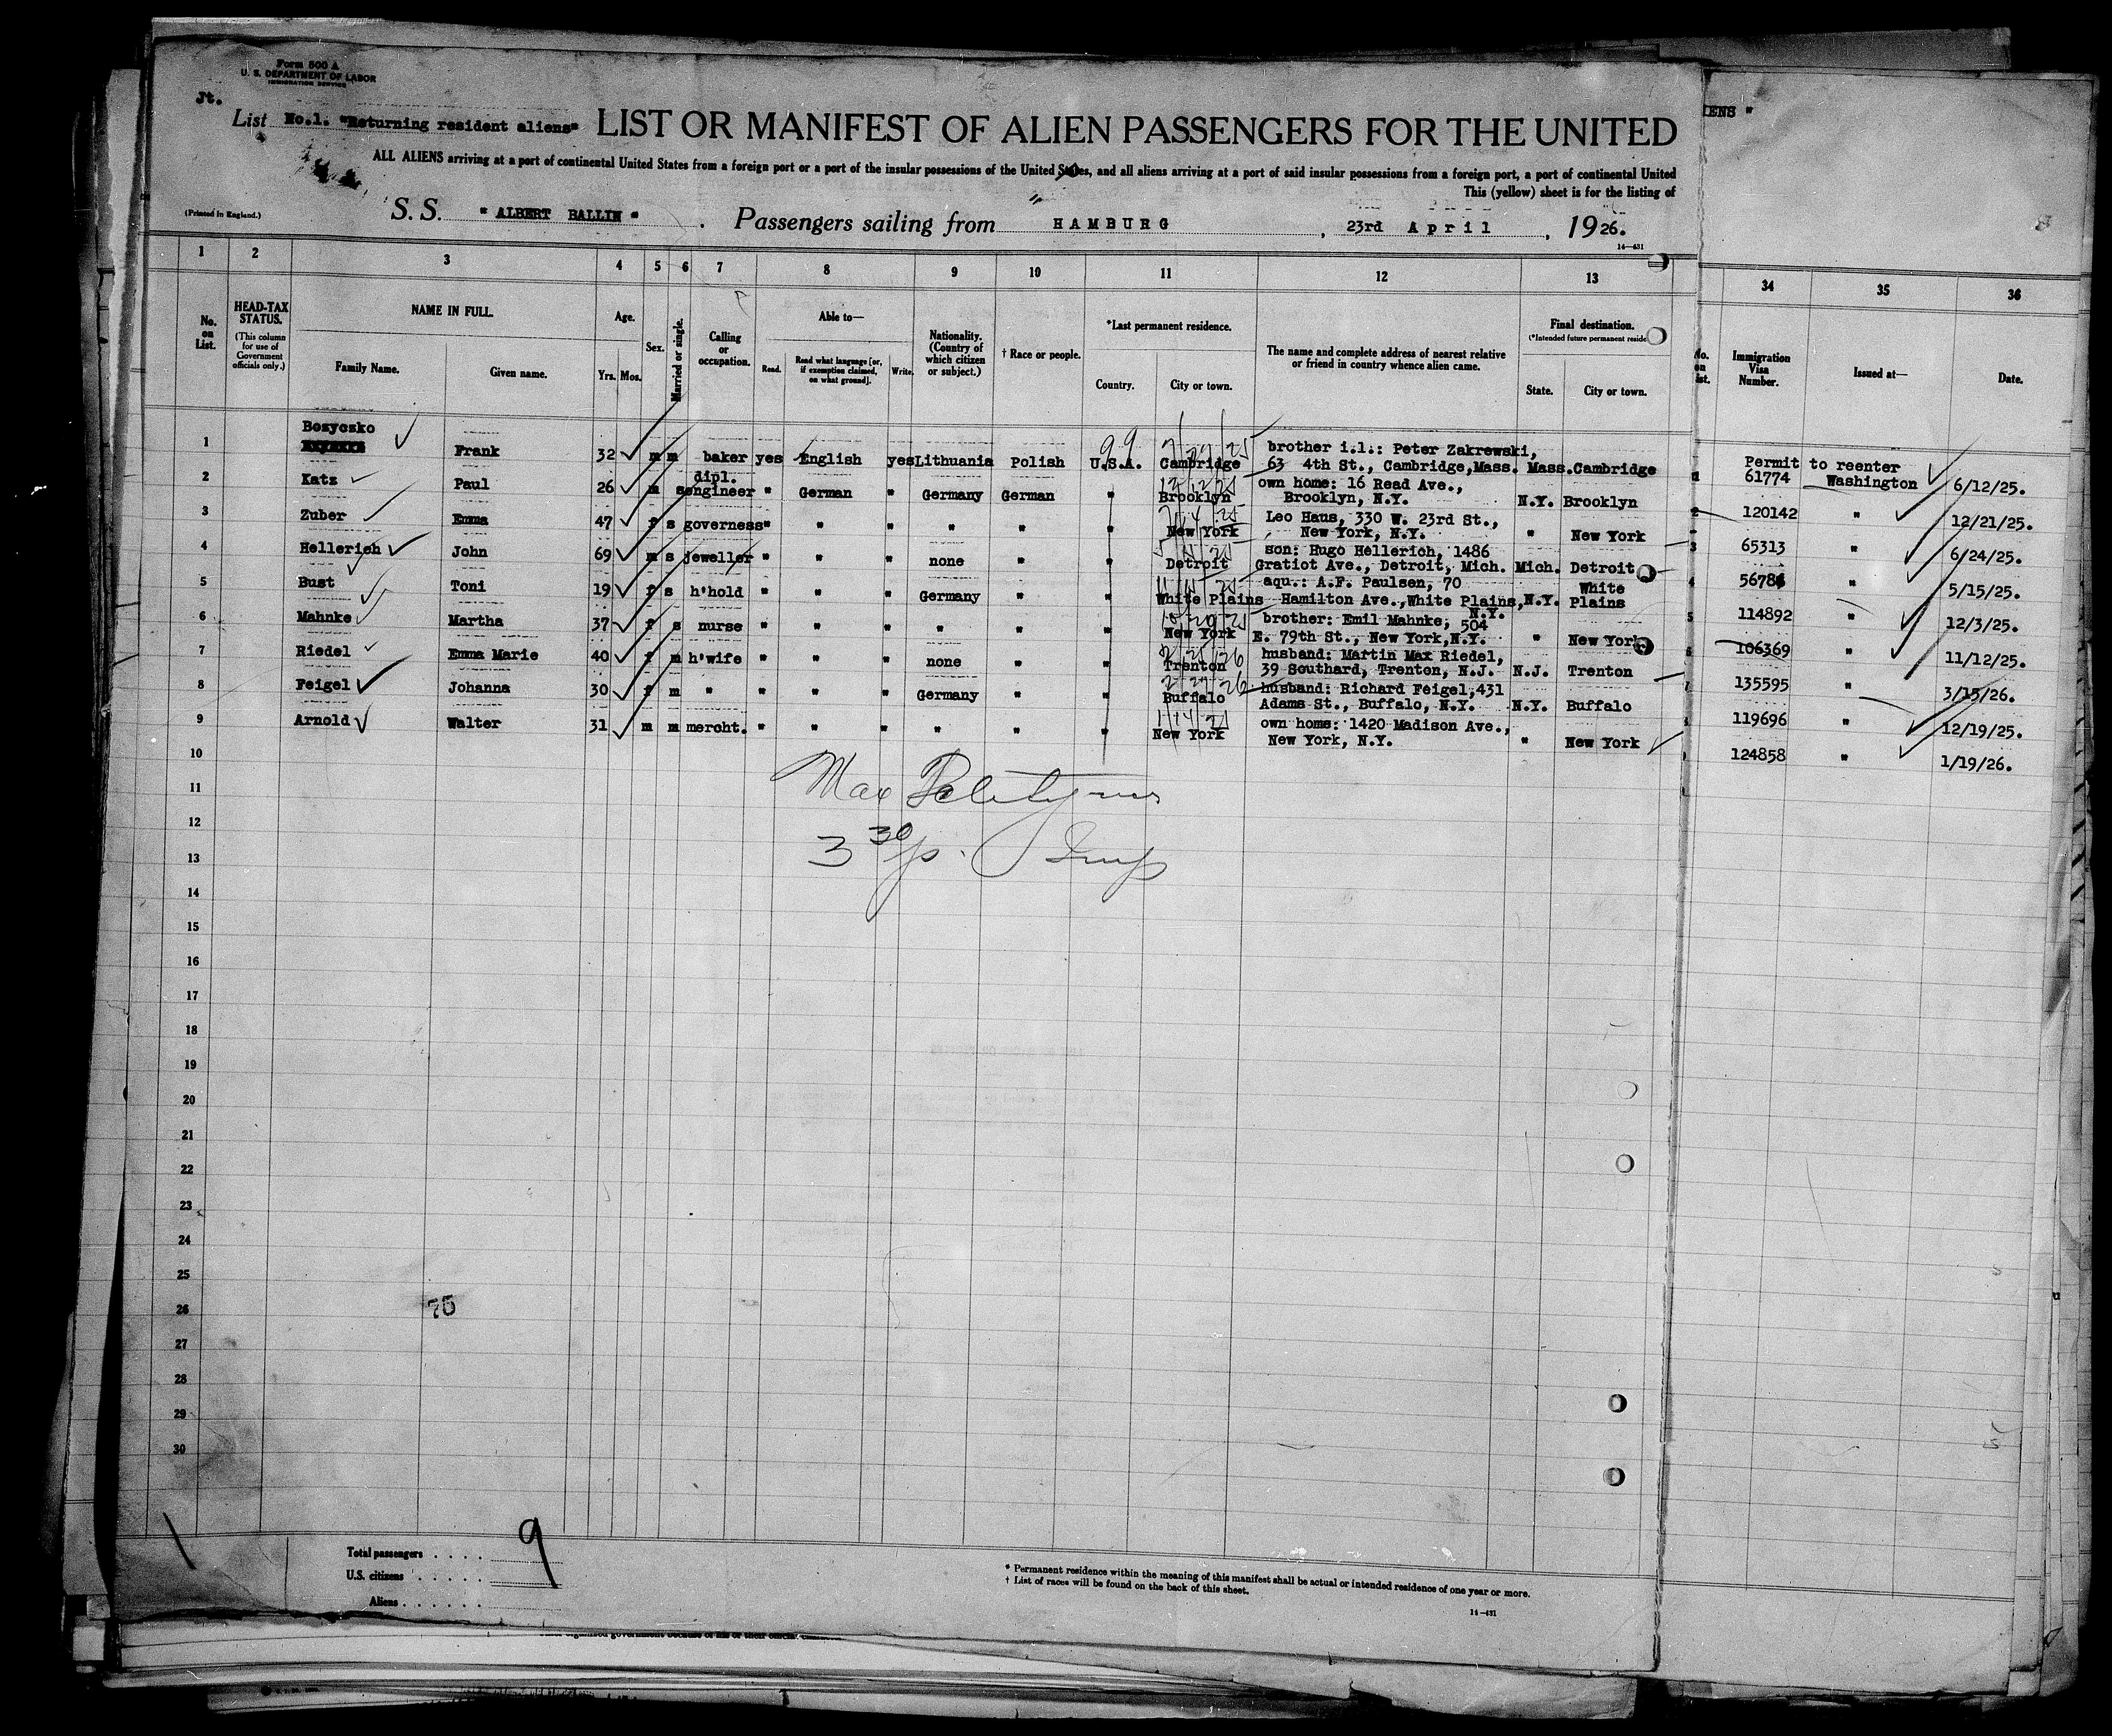 Form 500 A
U. S. DEPARTMENT OF LABOR
IMMIGRATION SERVICE
Jt.
List No.1. "Returning resident aliens" LIST OR MANIFEST OF ALIEN PASSENGERS FOR THE UNITED
IENS "
ALL ALIENS arriving at a port of continental United States from a foreign port or a port of the insular possessions of the United States, and all aliens arriving at a port of said insular possessions from a foreign port, a port of continental United
This (yellow) sheet is for the listing of
(Printed in England.)
S. S. " ALBERT BALLIN " . Passengers sailing from HAMBURG , 23rd April , 1926.
14—431
1 2 3 4 5 6 7 8 9 10 11 12 13 34 35 36
No. on List.
HEAD-TAX STATUS.
(This column for use of Government officials only.)
NAME IN FULL.
Family Name. Given name.
Age.
Yrs. Mos.
Sex.
Married or single.
Calling or occupation.
Able to—
Read. Read what language [or, if exemption claimed, on what ground]. Write.
Nationality. (Country of which citizen or subject.)
† Race or people.
*Last permanent residence.
Country. City or town.
The name and complete address of nearest relative or friend in country whence alien came.
Final destination.
(*Intended future permanent reside
State. City or town.
No. on ist.
Immigration Visa Number.
Issued at—
Date.
Bosyczko
1 Frank 32 m m baker yes English yes Lithuania Polish U.S.A. Cambridge brother i.l.: Peter Zakrewski,
63 4th St., Cambridge, Mass. Mass. Cambridge
Permit to reenter
61774 Washington 6/12/25.
2 Katz Paul 26 m s dipl. engineer " German " Germany German " Brooklyn own home: 16 Read Ave.,
Brooklyn, N.Y. N.Y. Brooklyn
120142 " 12/21/25.
3 Zuber Emma 47 f s governess " " " " " " New York Leo Haus, 330 W. 23rd St.,
New York, N.Y. " New York
65313 " 6/24/25.
4 Hellerich John 69 m s jeweller " " " none " " Detroit son: Hugo Hellerich, 1486
Gratiot Ave., Detroit, Mich. Mich. Detroit
56784 " 5/15/25.
5 Bust Toni 19 f s h'hold " " " Germany " " White Plains aqu.: A.F. Paulsen, 70
Hamilton Ave., White Plains, N.Y. N.Y. White Plains
114892 " 12/3/25.
6 Mahnke Martha 37 f s nurse " " " " " " New York brother: Emil Mahnke, 504
E. 79th St., New York, N.Y. " New York
106369 " 11/12/25.
7 Riedel Emma Marie 40 f m h'wife " " " none " " Trenton husband: Martin Max Riedel,
39 Southard, Trenton, N.J. N.J. Trenton
135595 " 3/15/26.
8 Feigel Johanna 30 f m " " " " Germany " " Buffalo husband: Richard Feigel, 431
Adams St., Buffalo, N.Y. N.Y. Buffalo
119696 " 12/19/25.
9 Arnold Walter 31 m m mercht. " " " " " " New York own home: 1420 Madison Ave.,
New York, N.Y. " New York
124858 " 1/19/26.
10
11
12
13
14
15
16
17
18
19
20
21
22
23
24
25
26
27
28
29
30
Max
3 30 p.
75
Total passengers . . . . 9
U.S. citizens . . . . .
Aliens . . . . . .
* Permanent residence within the meaning of this manifest shall be actual or intended residence of one year or more.
† List of races will be found on the back of this sheet.
14—431